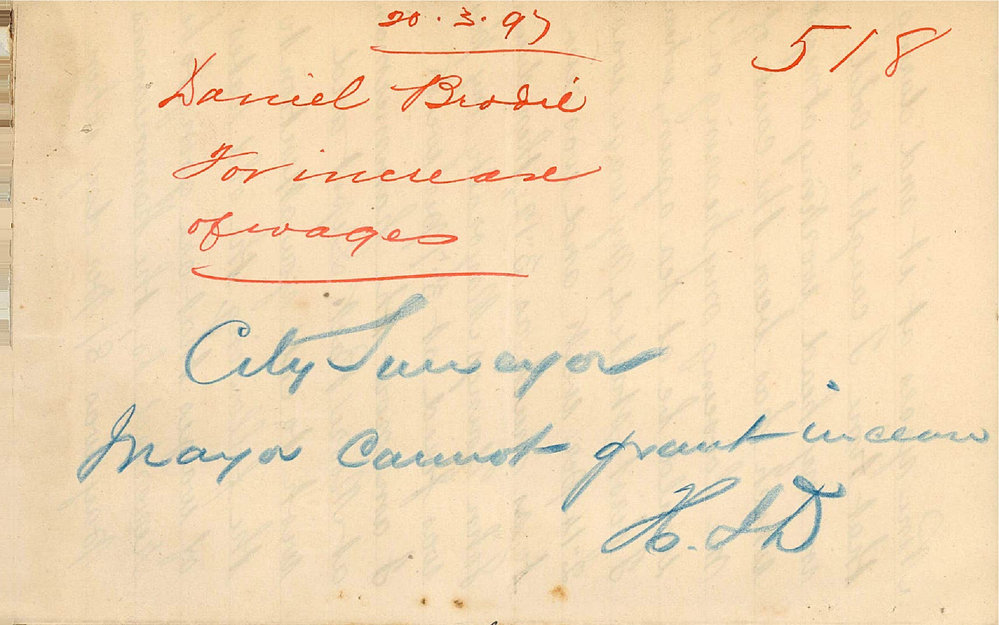 20.3.97
518
Daniel Brodie
For increase
of wages
City Surveyor
Mayor cannot grant increase
H. S. D